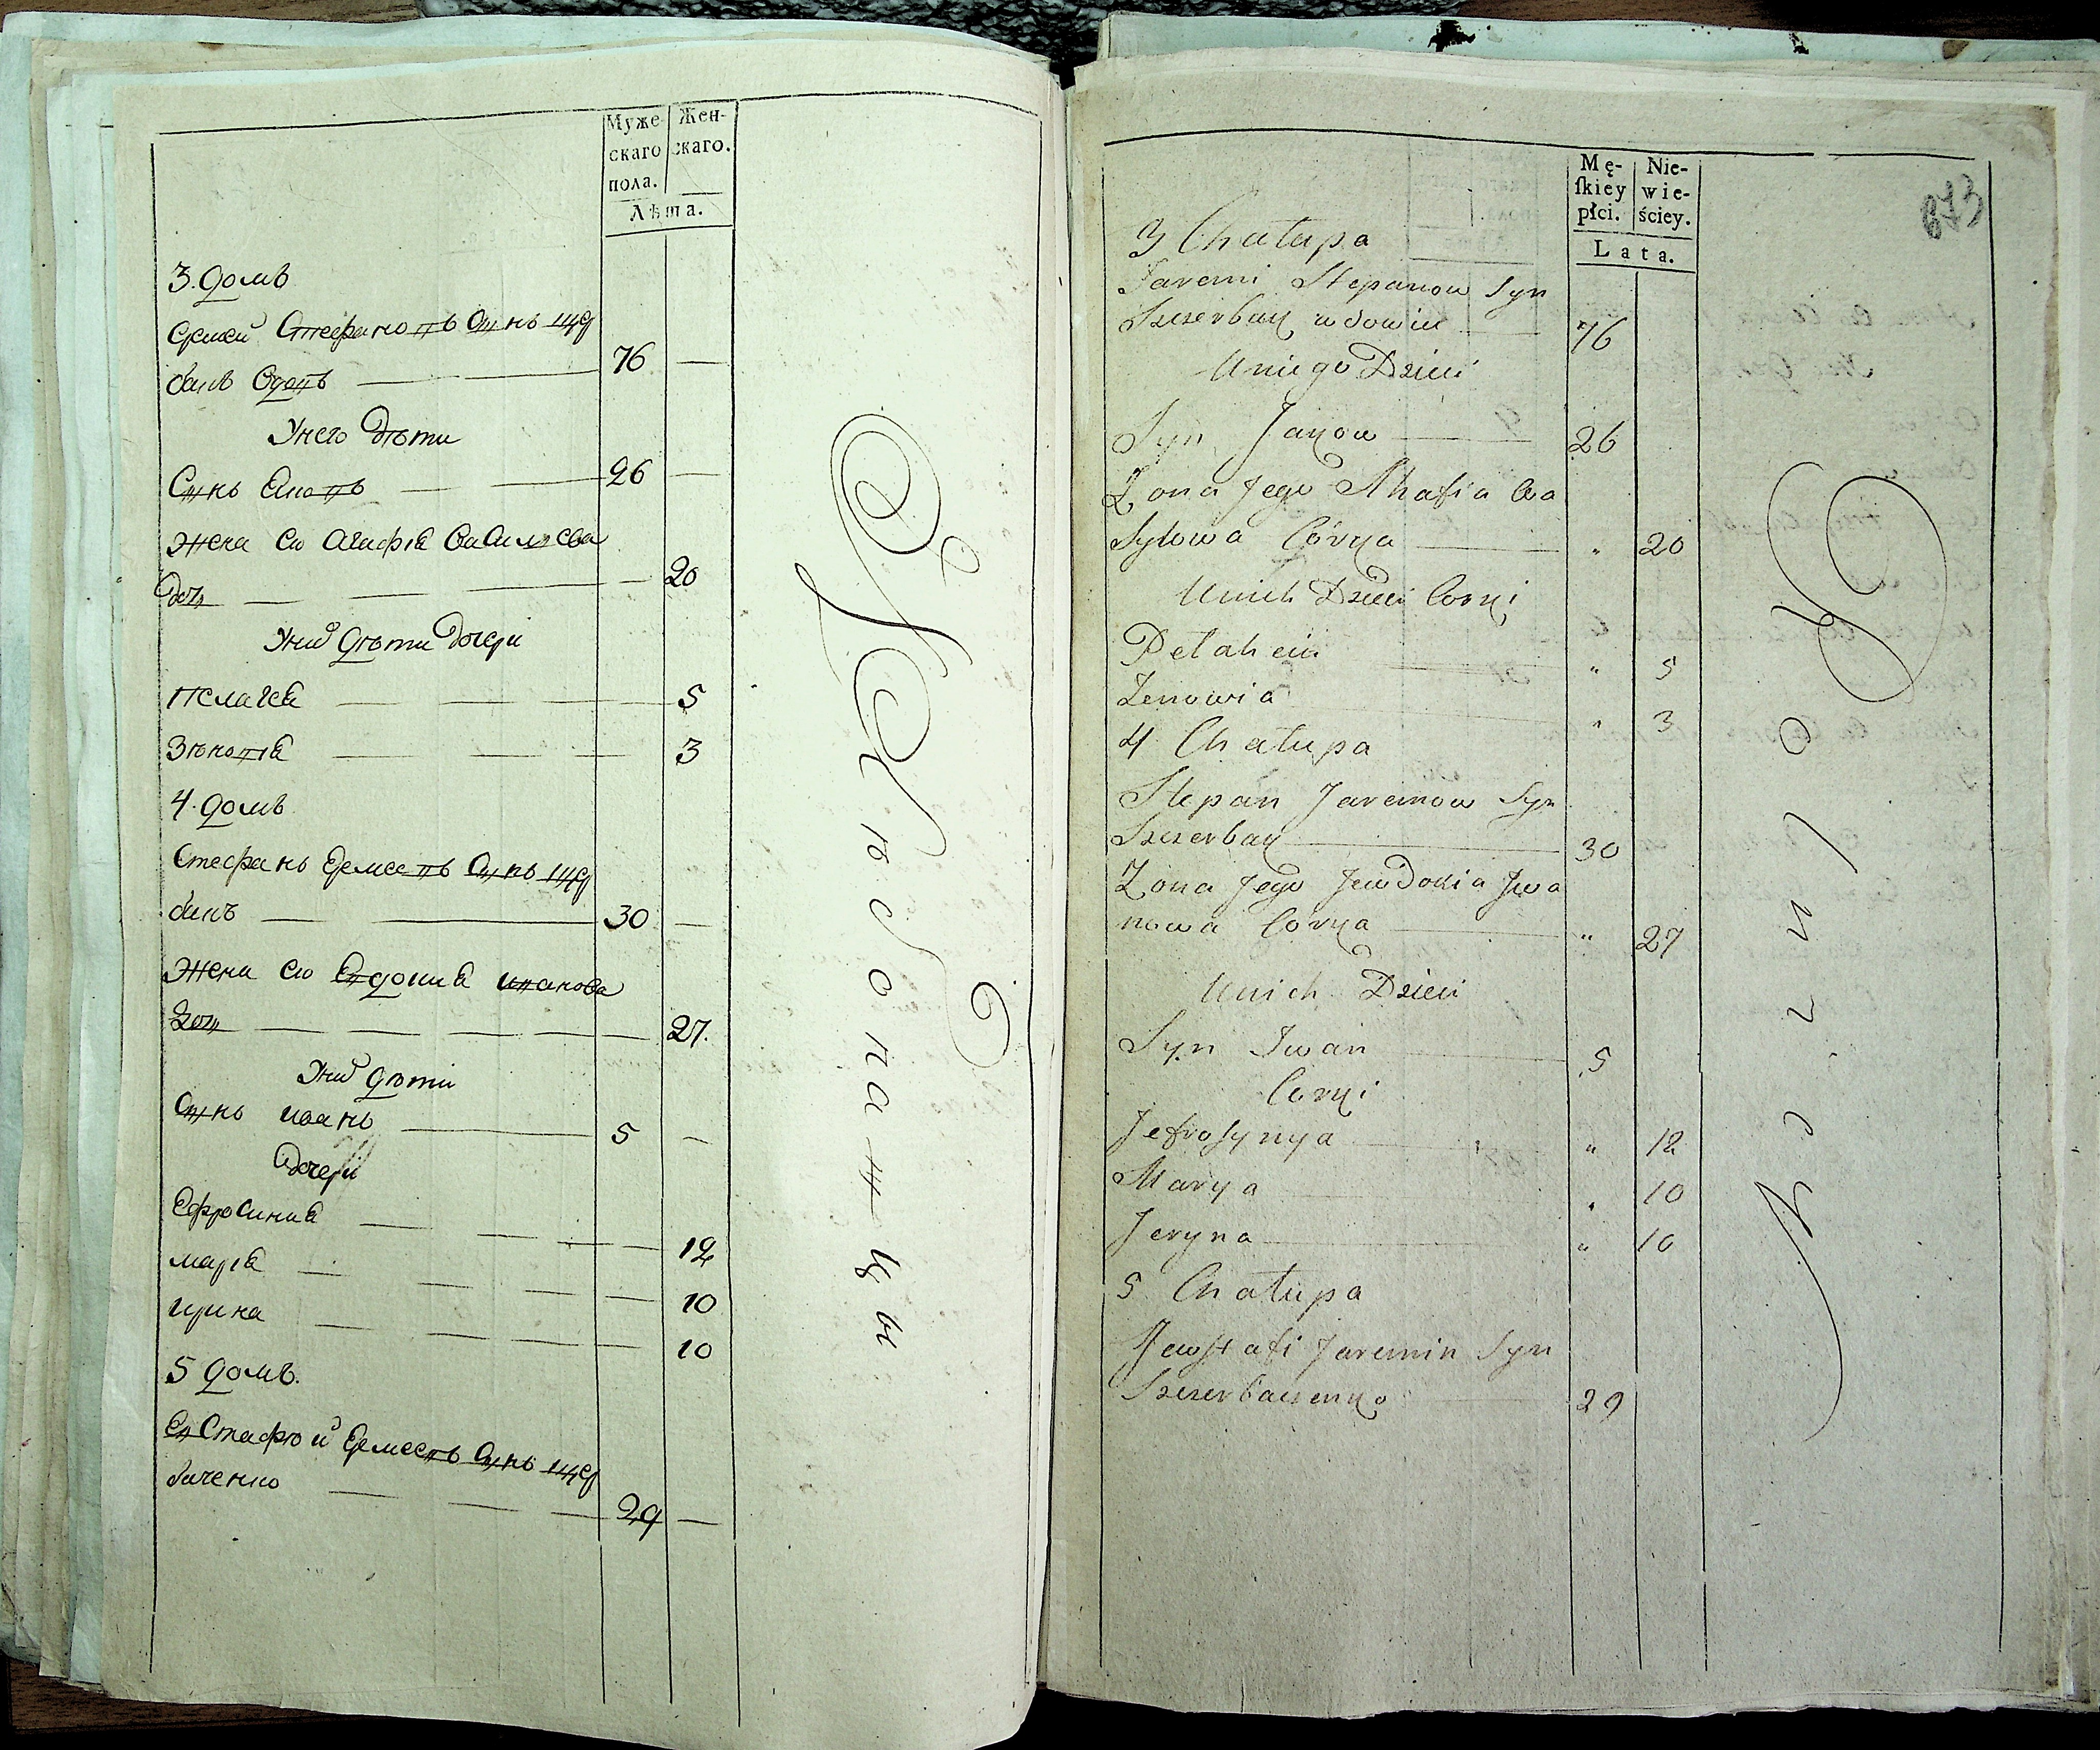 Муже-
скаго
пола.
Жен-
скаго.
Лѣта.
3. домъ
Еремей Стефановъ Сынъ Щер
бакъ Вдовъ 76
У него дѣти
Сынъ Яковъ 26
Жена его Агафiя Васильева
дочь 20
У них дѣти дочери
Пелагея 5
Зѣновiя 3
4. домъ
Стефанъ Еремеевъ Сынъ Щер
бакъ 30
Жена его Евдокия Иванова
дочь 27.
У них дѣти
Сынъ Иванъ 5
дочери
Ефросиния 12
Марiя 10
Ирина 10
5 домъ.
Евстафiй Еремеевъ Сынъ Щер
баченко 29
Mę-
ſkiey
płci.
Nie-
wie-
ściey.
Lata.
673
3 Chałupa
Jaremi Stepanow Syn
Szczerbak wdowiec 76
U niego Dzieci
Syn Jakow 26
Zona Jego Ahafia Wa
sylowa Córka " 20
U nich Dzieci Corki
Pelaheia " 5
Zenowia " 3
4 Chałupa
Stepan Jaremow Syn
Szczerbak 30
Zona Jego Jewdokia Jwa
nowa Corka " 27
U nich Dzieci
Syn Iwan 5
Corki
Jefrosynya " 12
Marya " 10
Jeryna " 10
5 Chałupa
Jewstafi Jaremin Syn
Szczerbaczenko 29